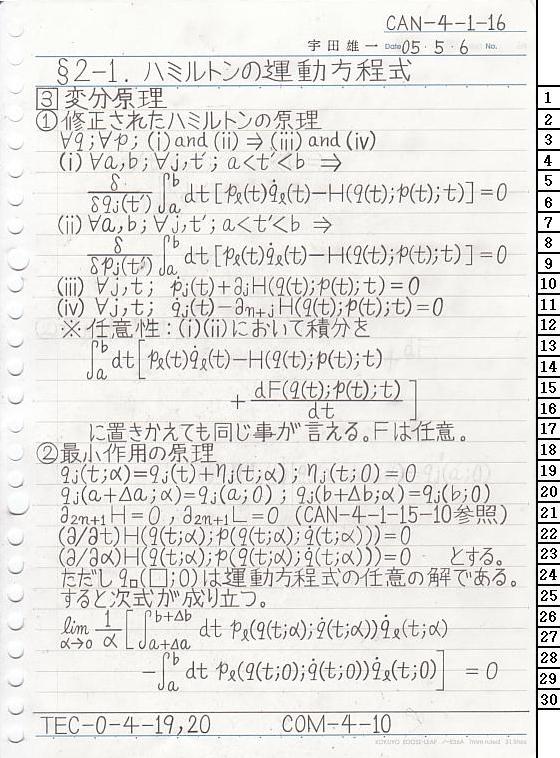 CAN-4-1-16
宇田雄一 Date 05・5・6 No.
§2-1. ハミルトンの運動方程式
3 変分原理
① 修正されたハミルトンの原理
∀q;∀p; (i) and (ii) ⇒ (iii) and (iv)
(i) ∀a,b; ∀j,t′; a<t′<b ⇒
δ/δqj(t′) ∫_a^b dt [pℓ(t)q̇ℓ(t)−H(q(t);p(t);t)]=0
(ii) ∀a,b; ∀j,t′; a<t′<b ⇒
δ/δpj(t′) ∫_a^b dt [pℓ(t)q̇ℓ(t)−H(q(t);p(t);t)]=0
(iii) ∀j,t; ṗj(t)+∂jH(q(t);p(t);t)=0
(iv) ∀j,t; q̇j(t)−∂n+jH(q(t);p(t);t)=0
※ 任意性:(i)(ii)において積分を
∫_a^b dt[pℓ(t)q̇ℓ(t)−H(q(t);p(t);t)
+ dF(q(t);p(t);t)/dt ]
に置きかえても同じ事が言える。Fは任意。
② 最小作用の原理
qj(t;α)=qj(t)+ηj(t;α) ; ηj(t;0)=0
qj(a+Δa;α)=qj(a;0) ; qj(b+Δb;α)=qj(b;0)
∂2n+1H=0 , ∂2n+1L=0 (CAN-4-1-15-10参照)
(∂/∂t)H(q(t;α);p(q(t;α);q̇(t;α)))=0
(∂/∂α)H(q(t;α);p(q(t;α);q̇(t;α)))=0 とする。
ただし q□(□;0)は運動方程式の任意の解である。
すると次式が成り立つ。
lim α→0 1/α [∫_{a+Δa}^{b+Δb} dt pℓ(q(t;α);q̇(t;α))q̇ℓ(t;α)
−∫_a^b dt pℓ(q(t;0);q̇(t;0))q̇ℓ(t;0)] =0
TEC-0-4-19,20 COM-4-10
1
2
3
4
5
6
7
8
9
10
11
12
13
14
15
16
17
18
19
20
21
22
23
24
25
26
27
28
29
30